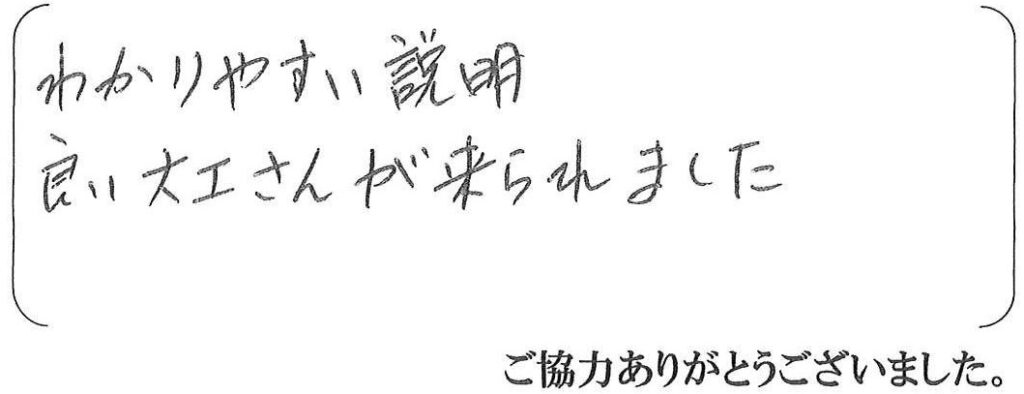 わかりやすい説明
良い大工さんが来られました
ご協力ありがとうございました。